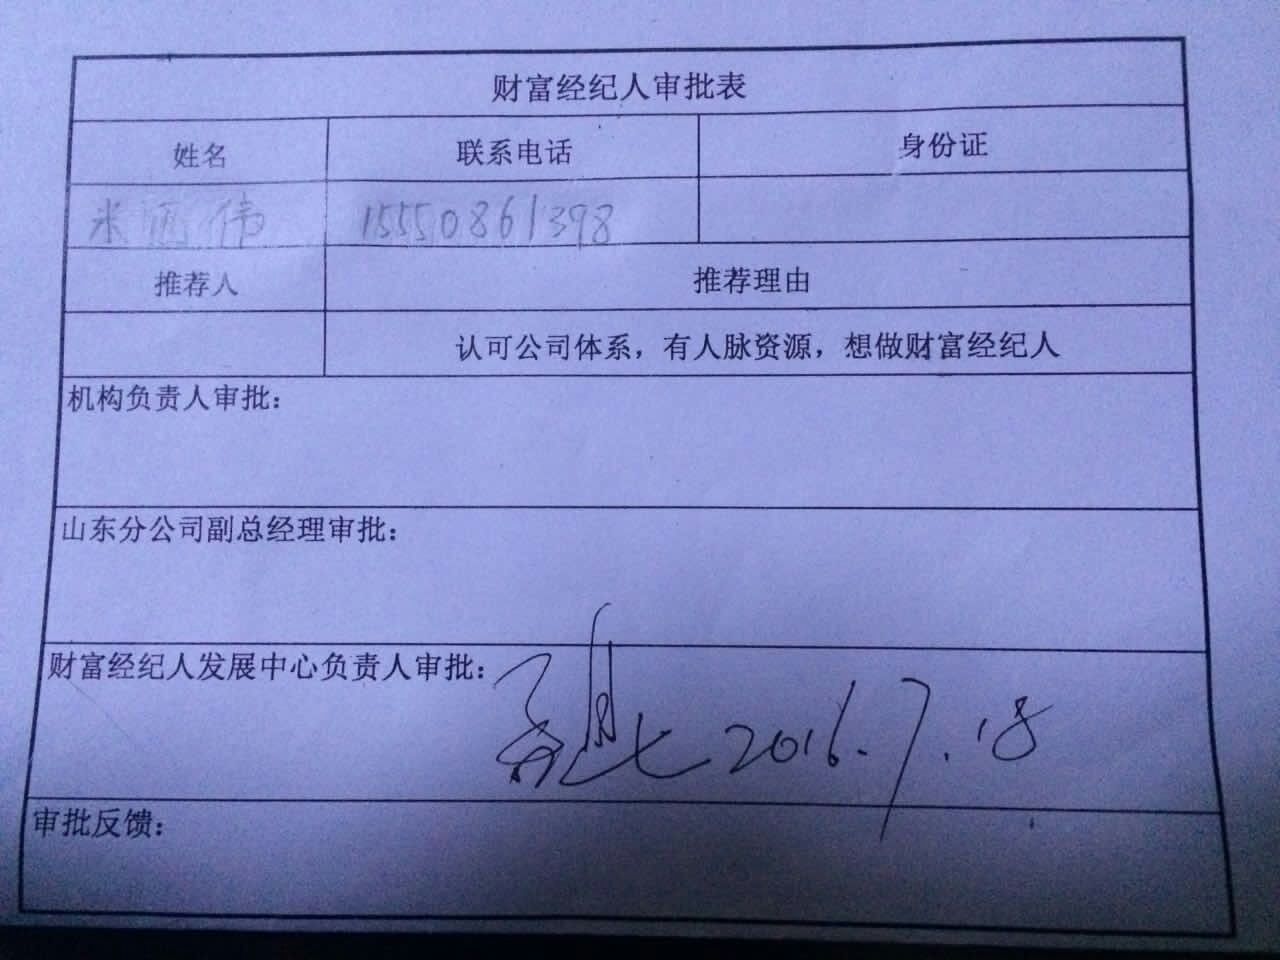 财富经纪人审批表
姓名 联系电话 身份证
米 伟 15550861398
推荐人 推荐理由
认可公司体系，有人脉资源，想做财富经纪人
机构负责人审批：
山东分公司副总经理审批：
财富经纪人发展中心负责人审批：
2016.7.18
审批反馈：